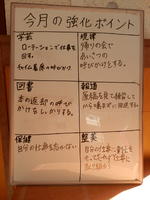 今月の強化ポイント
学芸
ローテーションで仕事を
する。
チャイム着席の呼びかけ
規律
帰りの会で
あいさつの
呼びかけをする。
図書
本の返却の呼び
かけをしっかりする。
報道
原稿を見て練習して
から
放送する。
保健
自分の仕事を忘れない
整美
自分の仕事に責任を
もって